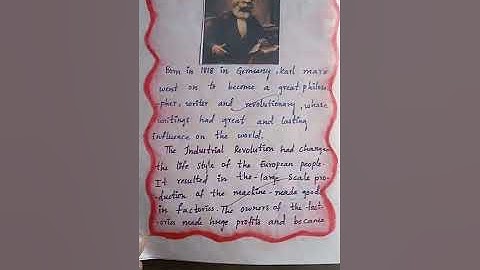 Born in 1818 in Germany, Karl marx
went on to become a great philoso
pher, writer and revolutionary, whose
writings had great and lasting
influence on the world.
The Industrial Revolution had change
the life style of the European people.
It resulted in the large scale pro-
duction of the machine-made goods
in factories. The owners of the fact-
ories made huge profits and became